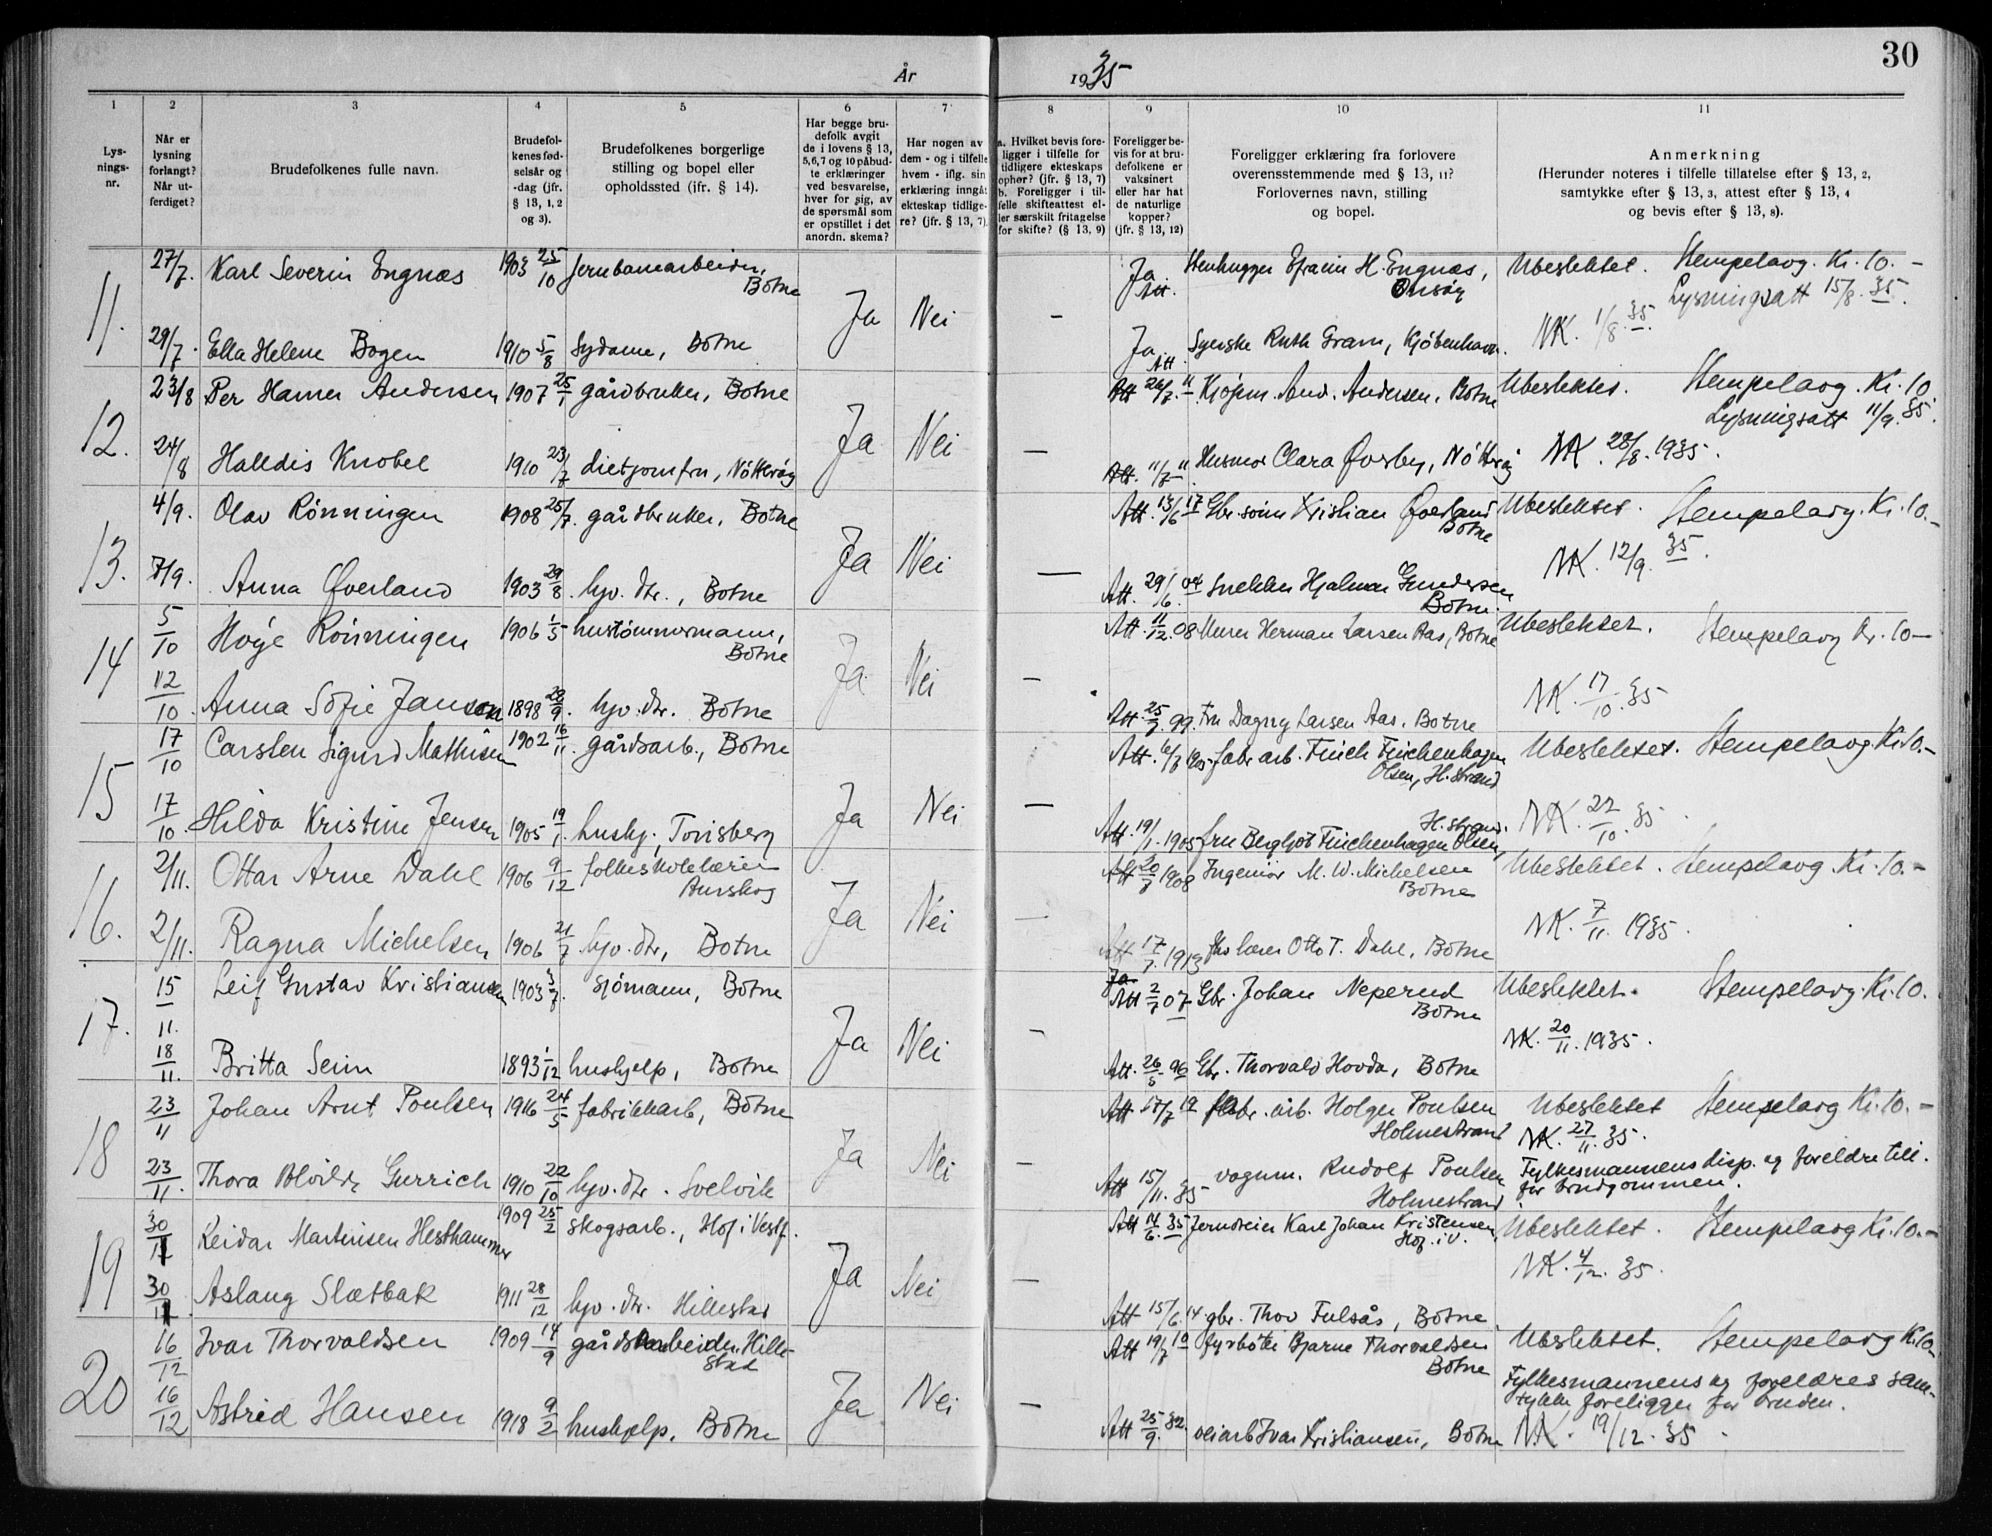 30
År 1935
1 2 3 4 5 6 7 8 9 10 11
Lys-
nings-
nr.
Når er
lysning
forlangt?
Når ut-
ferdiget?
Brudefolkenes fulle navn.
Brudefol-
kenes fød-
selsår og
-dag (jfr.
§ 13, 1, 2
og 3).
Brudefolkenes borgerlige
stilling og bopel eller
opholdssted (jfr. § 14).
Har begge bru-
defolk avgit
de i lovens § 13,
5,6,7 og 10 påbud-
te erklæringer
ved besvarelse,
hver for sig, av
de spørsmål som
er opstillet i det
anordn. skema?
Har nogen av
dem - og i tilfelle
hvem - iflg. sin
erklæring inngåt
ekteskap tidlige-
re? (jfr. § 13, 7)
a. Hvilket bevis fore-
ligger i tilfelle for
tidligere ekteskaps
ophør? (jfr. § 13, 7)
b. Foreligger i til-
felle skifteattest el-
ler særskilt fritagelse
for skifte? (§ 13, 9)
Foreligger be-
vis for at bru-
defolkene er
vaksinert
eller har hat
de naturlige
kopper?
(jfr. § 13, 12)
Foreligger erklæring fra forlovere
overensstemmende med § 13, 11?
Forlovernes navn, stilling
og bopel.
Anmerkning
(Herunder noteres i tilfelle tillatelse efter § 13, 2,
samtykke efter § 13, 3, attest efter § 13, 4
og bevis efter § 13, 8).
11. 27/7. Karl Severin Engnæs 1903 25/10 Jernbanearbeider, Botne Ja Nei – Ja Att. Stenhugger Efraim H. Engnæs, Onsøy Ubeslektet. Stempelavg. Kr. 10.–
Lysningsatt 15/8. 35.
29/7. Ella Helene Bogen 1910 5/8 Sydame, Botne Ja Att. Syerske Ruth Gram, Kjöbenhavn. NK. 1/8. 35.
12. 23/8 Per Hamer Andersen 1907 25/1 gårdbruker, Botne Ja Nei – Att 26/7. 11. Kjøpm. And. Andersen, Botne Ubeslektet. Stempelavg. Kr. 10
Lysningsatt 11/9. 35.
24/8 Halldis Knobel 1910 23/7 dietjomfru, Nötteröy Att. 11/7 11. Husmor Clara Øvrby, Nötteröy NK. 28/8. 1935.
13. 4/9. Olav Rönningen 1908 25/7. gårdbruker, Botne Ja Nei – Att. 13/6 17 Gbr. sönn Kristian Øverland Botne Ubeslektet. Stempelavg. Kr. 10.–
7/9. Anna Øverland 1903 29/8. hjv. dtr., Botne Att. 29/6. 04 Snekker Hjalmar Gundersen Botne. NK. 12/9. 35.
14 5/10 Höye Rönningen 1906 1/5 hustömmermann, Botne Ja Nei – Att. 11/12. 08 Murer Herman Larsen Aas, Botne Ubeslektet. Stempelavg Kr. 10–
12/10. Anna Sofie Jansen 1898 20/9. hjv. dtr. Botne Att. 25/7 99. Fru Dagny Larsen Aas. Botne NK. 17/10. 35
15 17/10 Carsten Sigurd Mathisen 1902 16/11. gårdsarb., Botne Ja Nei – Att. 6/3 1905. fabr arb. Finckenhagen Olsen, H.strand Ubeslektet. Stempelavg. Kr. 10.–
17/10. Hilda Kristine Jensen 1905 19/1. hushj. Tönsberg Att. 19/1. 1905 fru Bergljot Finckenhagen Olsen, H.strand. NK. 22/10. 35.
16. 2/11. Ottar Arne Dahl 1906 9/12 folkeskolelærer Aurskog Ja Nei – Att 20/7 1908 Ingeniör M. W. Michelsen Botne Ubeslektet. Stempelavg. Kr. 10.–
2/11. Ragna Michelsen 1906 21/7 hjv. dtr, Botne Att 17/7. 1913 lærer Otto T. Dahl, Botne NK. 7/11. 1935.
17. 15/11. Leif Gustav Kristiansen 1903 3/7. sjömann, Botne Ja Nei – Ja Att 2/7 07 Gbr. Johan Neperud Botne Ubeslektet. Stempelavg. Kr. 10.
18/11. Britta Seim 1893 1/12 hushjelp, Botne Att. 26/5 96 Gbr. Thorvald Hovda, Botne NK. 20/11. 1935.
18 23/11 Johan Arnt Poulsen 1916 24/5 fabrikkarb, Botne Ja Nei – Att 17/7 19 fabr. arb. Holger Poulsen Holmestrand Ubeslektet Stempelavg Kr. 10.–
NK. 27/11. 35.
23/11. Thora Gurrich 1910 22/10 hjv. dtr. Svelvik Att 15/11. 35 – vognm. Rudolf Poulsen Holmestrand Fylkesmannens disp. og foreldre till.
for brudgommen.
19 30/11 Reidar Martinsen Hesthammer 1909 25/2 skogsarb., Hof i Vestf. Ja Nei – Att 14/6. 35 Jerndreier Karl Johan Kristensen, Hof. i V. Ubeslektet. Stempelavg Kr. 10.–
30/11. Aslaug Slætbak 1911 28/12 hjv. dtr. Hillestad Att 15/6. 14. gbr. Thor Fulsås, Botne. NK. 4/12. 35.
20 16/12 Ivar Thorvaldsen 1909 14/9 gårdsarbeider, Hillestad Ja Nei – Att 19/7 10 fyrböter Bjarne Thorvaldsen Botne Ubeslektet. Stempelavg Kr 10–
16/12 Astrid Hansen 1918 9/2 hushjelp, Botne Att 25/9. 32. veiarb Ivar Kristiansen, Botne Fylkesmannens og foreldres sam-
tykke foreligger for bruden.
NK. 19/12. 35.